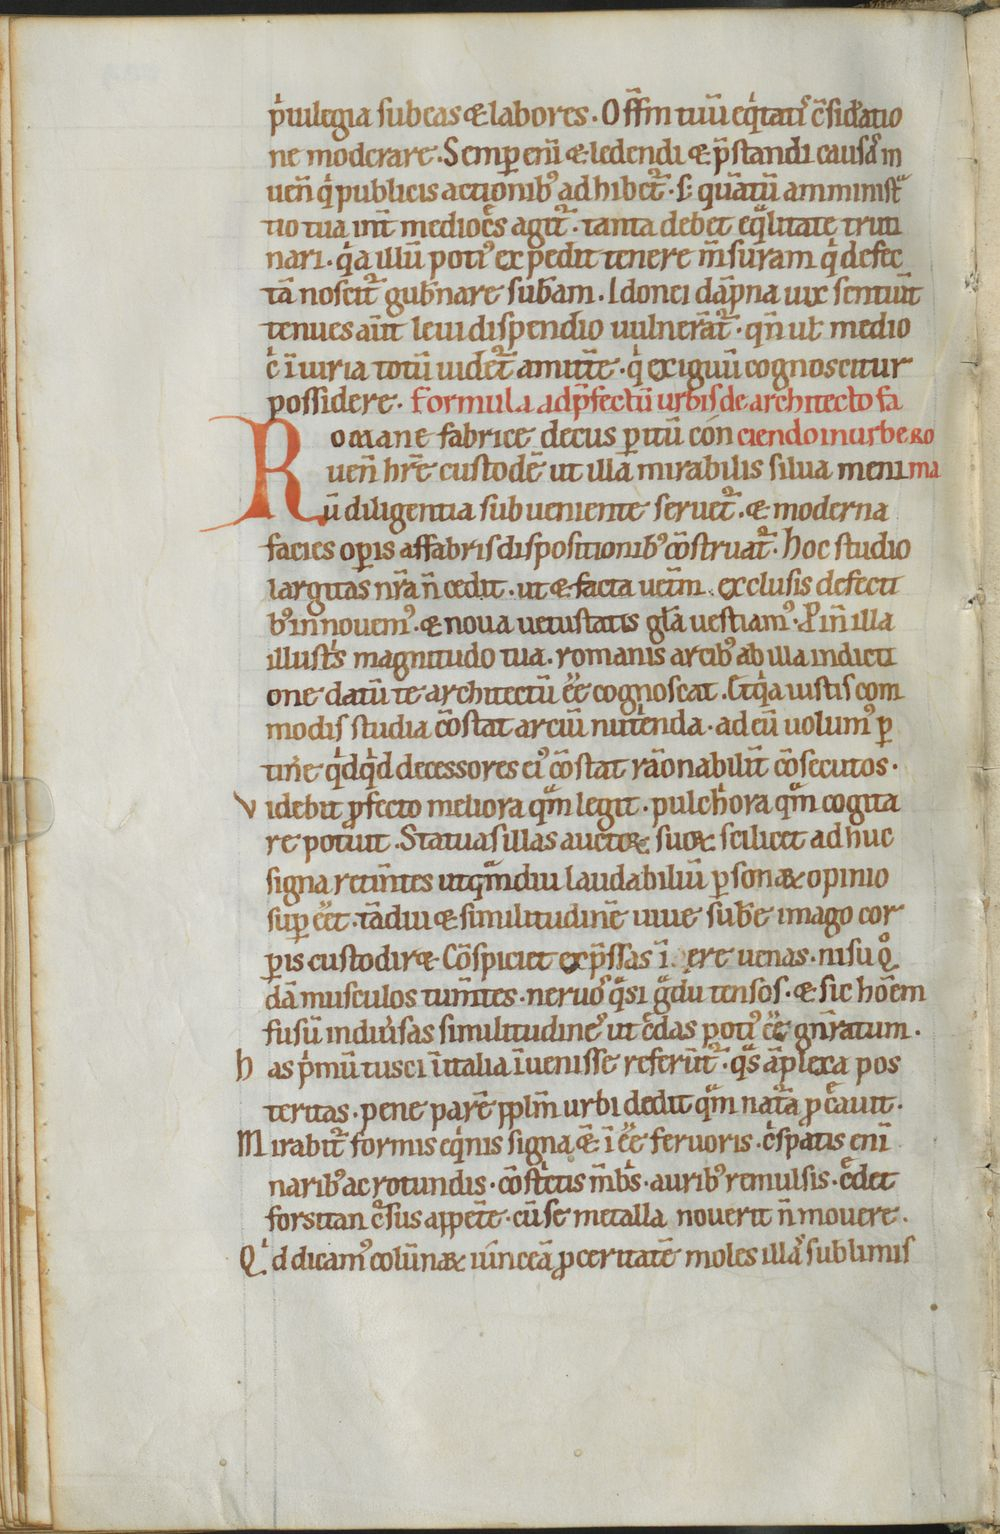 p̾uilegia subeas ⁊ labores. Offm̄ tuū eq̾tatis c̄sid̾atio
ne moderare. Semp enī ⁊ ledendi ⁊ p̄standi causā in
uen̄ q̾ publicis actionibꝰ adhibet᷑. s; quātū amminist̾
tio tua int̄ mediocͤs agit᷑. tanta debet eq̾litate truti
nari. q̾a illū potiꝰ expedit tenere m̄suram q̾ defec
tā noscit᷑ gub̄nare sub̄am. Idonei dāpna uix sentiūt
tenues aūt leui dispendio uulnerāt᷑. qn̄ ut medio
c̾ īiuria totū uidet᷑ amitt̄e. q̾ exiguū cognoscitur
possidere. Formula ad p̄fectū urbis de architecto fa
Romane fabrice decus p̱itū con ciendo in urbe ro
uen̄ hr̄e custodē ut illa mirabilis silua meni ma
ū diligentia subueniente seruet᷑. ⁊ moderna
facies opis affabris dispositionibꝰ cōstruat᷑. hoc studio
largitas nr̄a n̄ cedit. ut ⁊ facta uet̄m exclusis defecti
bꝰ innouemꝰ. ⁊ noua uetustatis gl̄a uestiamꝰ. Proin̄ illa
illust̾s magnitudo tua. romanis arcibꝰ ab illa indicti
one datū te architectū ēē cognoscat. Et q̾a iustis com
modis studia cōstat arciū nut̾enda. ad eū volumꝰ p
tin̄e q̾dq̾d decessores eiꝰ cōstat rāonabilit̄ cōsecutos.
Videbit p̱fecto meliora q̄m legit. pulch̾ora q̄m cogita
re potuit. Statuas illas auctoꝝ suoꝝ scilicet adhuc
signa retin̄tes ut q̄mdiu laudabiliū p̱sonaꝝ opinio
sup ēēt. tādiu ⁊ similitudinē uiue sub̄e imago cor
pis custodir&. Cōspiciet exp̄ssas ī ere uenas. nisu qͦ
dā musculos tum̄tes. neruos q̾si g̾du tensos. ⁊ sic hōem
fusū in diu̾sas similitudines ut c̾das potiꝰ ēē gn̄ratum.
has p̾mū tusci ī italia īuenisse referūt᷑. q̾s āplexa pos
teritas. pene parē pplm̄ urbi dedit q̄m nat᷑a p̱c̾auit.
Mirabit᷑ formis eq̾nis signa &̄ ī ēē feruoris. c̾spatis eni
naribꝰ ac rotundis. cōst̾ctis mb̄s. auribꝰ remulsis. c̾det
forsitan c̾sus appet̄e. cū se metalla nouerit n̄ mouere.
Q̾d dicamꝰ colūnaꝝ iūnceā p̱ceritatē moles illas sublimis